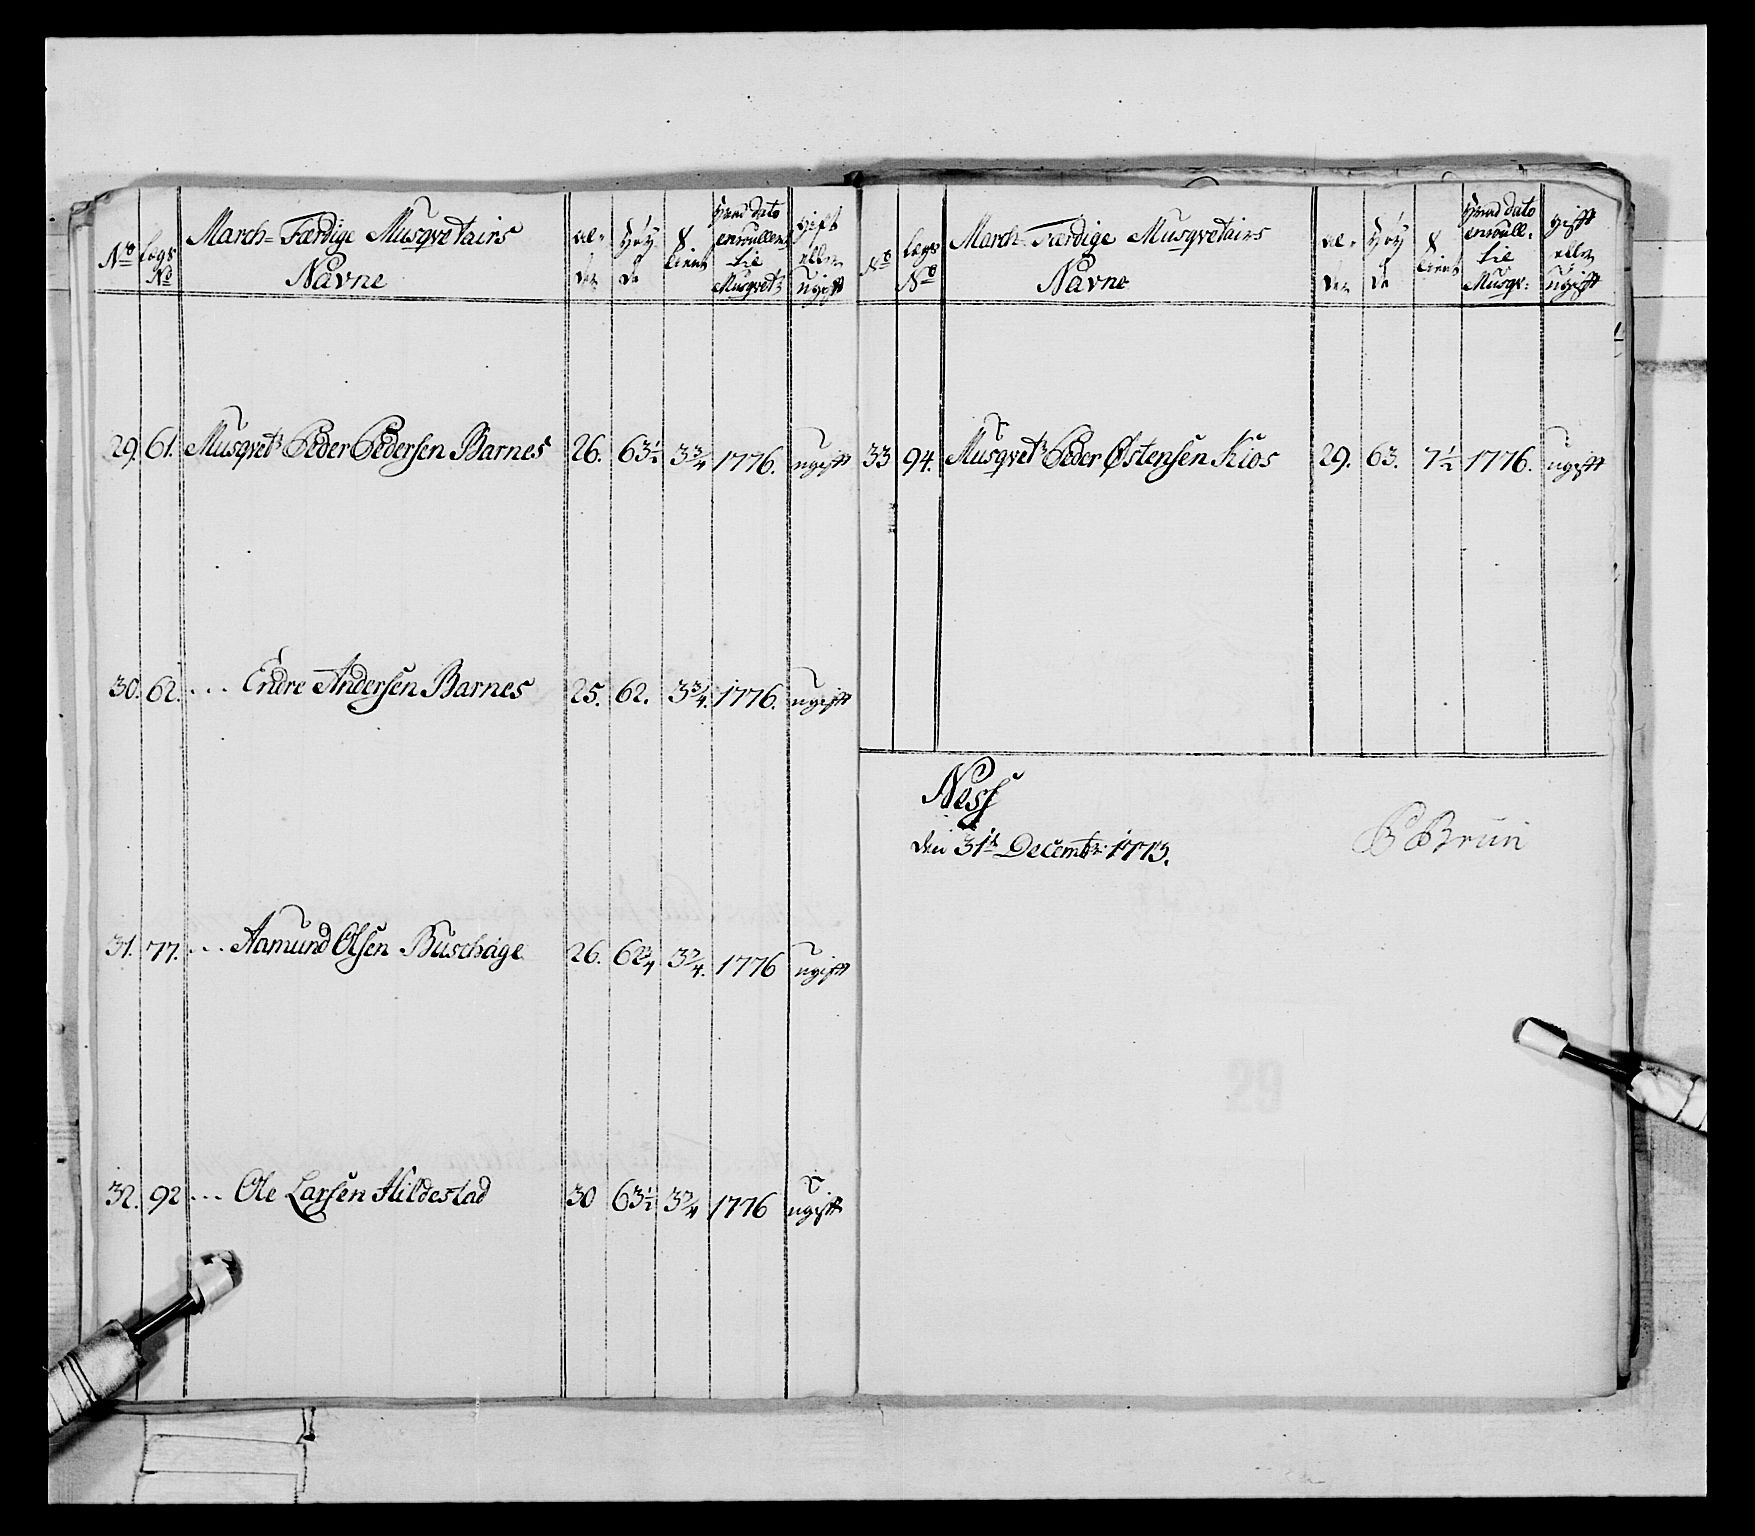 No
Lægs No
March-Færdige Musqvetairs
Navne
al-
der
Høy
de
tient
Hvad dato
enroulleret
til
Musqvetr
gift
eller
Ugift
29. 61. Musqvetr Peder Pedersen Barnes 26. 63½ 3¾ 1776. ugift
30. 62. ... Endre Andersen Barnes 25. 62. 3¾. 1776. ugift
31. 77. ... Aamund Olsen Buschage 26. 62¾ 3¾. 1776 ugift
32. 92 ... Ole Larsen Hildestad 30 63½ 3¾ 1776 ugift
No
Lægs
No
March-Færdige Musqvetairs
Navne
al-
der
Høy
de
tient
Hvad dato
enroulle-
til
Musqv:
gift
eller
ugift
33 94. Musqvetr Peder Østensen Kios 29. 63. 7½ 1776. ugift
Ness
den 31te Decembr 1773.
Brun
29